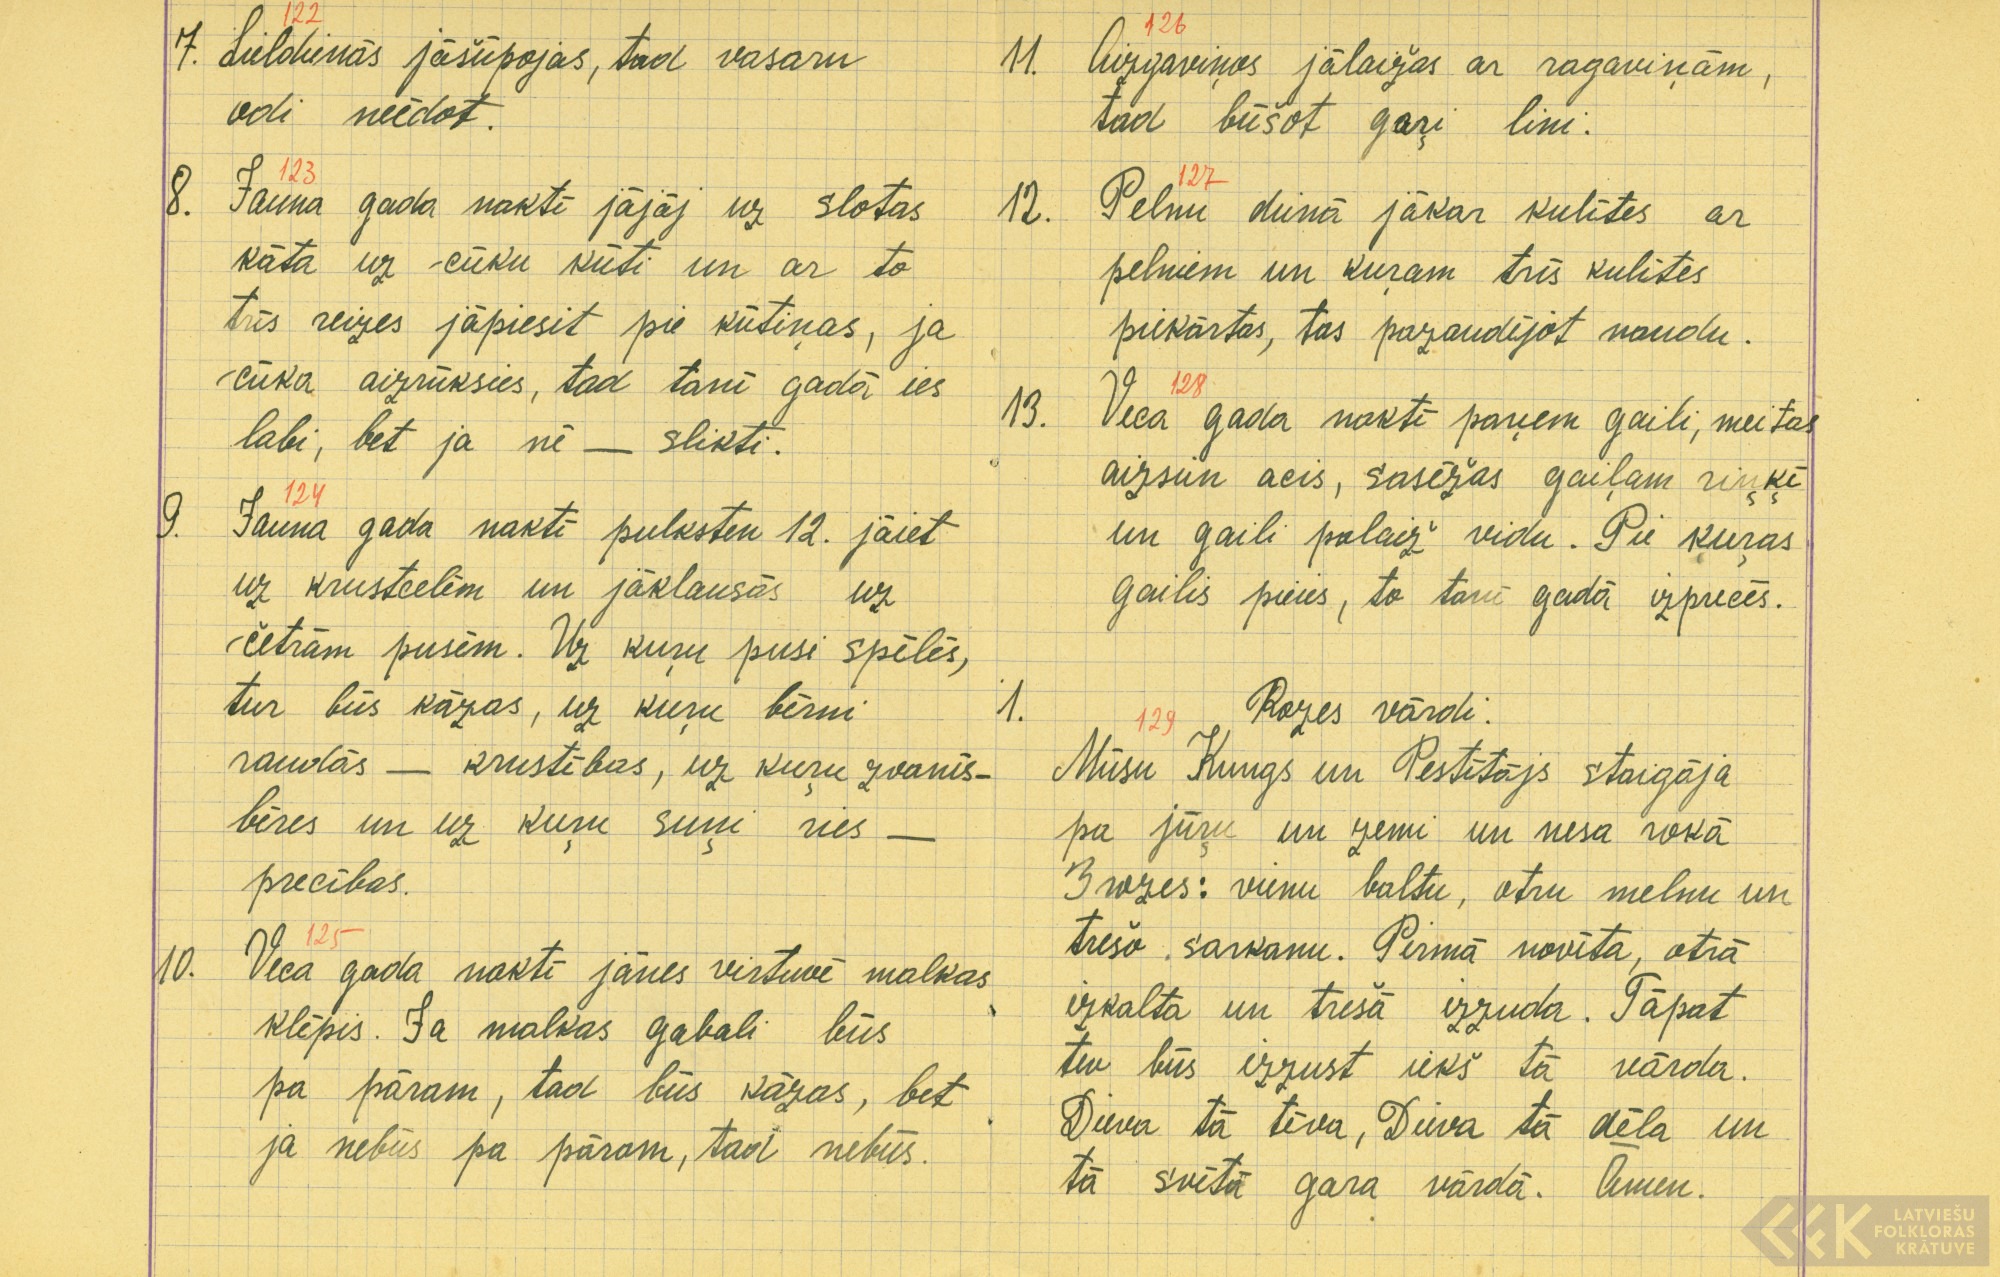 122
7. Lieldienās jāšūpojas, tad vasaru
odi neēdot.
123
8. Jauna gada naktī jājāj uz slotas
kāta uz cūku kūti un ar to
trīs reizes jāpiesit pie kūtiņas, ja
cūka aizrūksies, tad tanī gadā ies
labi, bet ja nē — slikti.
124
9. Jauna gada naktī pulksten 12. jāiet
uz krustceļēm un jāklausās uz
četrām pusēm. Uz kuŗu pusi spēlēs,
tur būs kāzas, uz kuŗu bērni
raudās — krustības, uz kuŗu zvanīs-
bēres un uz kuŗu suņi ries —
precības.
125
10. Veca gada naktī jānes virtuvē malkas
klēpis. Ja malkas gabali būs
pa pāram, tad būs kāzas, bet
ja nebūs pa pāram, tad nebūs.
126
11. Aizgaviņos jālaižas ar ragaviņām,
tad būšot gaŗi lini.
127
12. Pelnu dienā jākar kulītes ar
pelniem un kuŗam trīs kulītes
piekārtas, tas pazaudējot naudu.
128
13. Veca gada naktī paņem gaili, meitas
aizsien acis, sasēžas gaiļam riņķī
un gaili palaiž vidu. Pie ķuŗas
gailis pieies, to tanī gadā izprecēs.
1. Rozes vārdi.
129
Mūsu Kungs un Pestītājs staigāja
pa jūŗu un zemi un nesa rokā
3 rozes: vienu baltu, otru melnu un
trešo sarkanu. Pirmā novīta, otrā
izkalta un trešā izzuda. Tāpat
tev būs izzust iekš tā vārda.
Dieva tā tēva, Dieva tā dēla un
tā svētā gara vārdā. Āmen.
LATVIEŠU
FOLKLORAS
KRĀTUVE